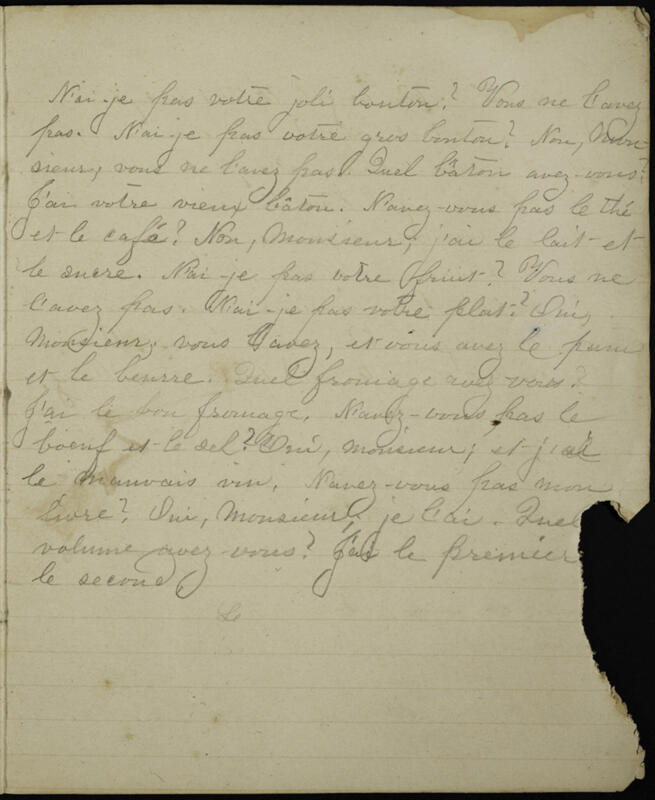 N'ai-je pas votre joli bouton? Vous ne l'avez
pas. N'ai-je pas votre gros bouton? Non, Mon-
sieur, vous ne l'avez pas. Quel bâton avez-vous?
J'ai votre vieux bâton. N'avez-vous pas le thé
et le café? Non, Monsieur; j'ai le lait et
le sucre. N'ai-je pas votre fruit? Vous ne
l'avez pas. N'ai-je pas votre plat? Oui,
Monsieur, vous l'avez, et vous avez le
et le beurre. Quel fromage avez-vous?
J'ai le bon fromage. N'avez-vous pas le
boeuf et le sel? Oui, monsieur; et j'ai
le mauvais vin. N'avez-vous pas mon
livre? Oui, Monsieur, je l'ai. Quel
volume avez-vous? J'ai le premier
le second,
Le